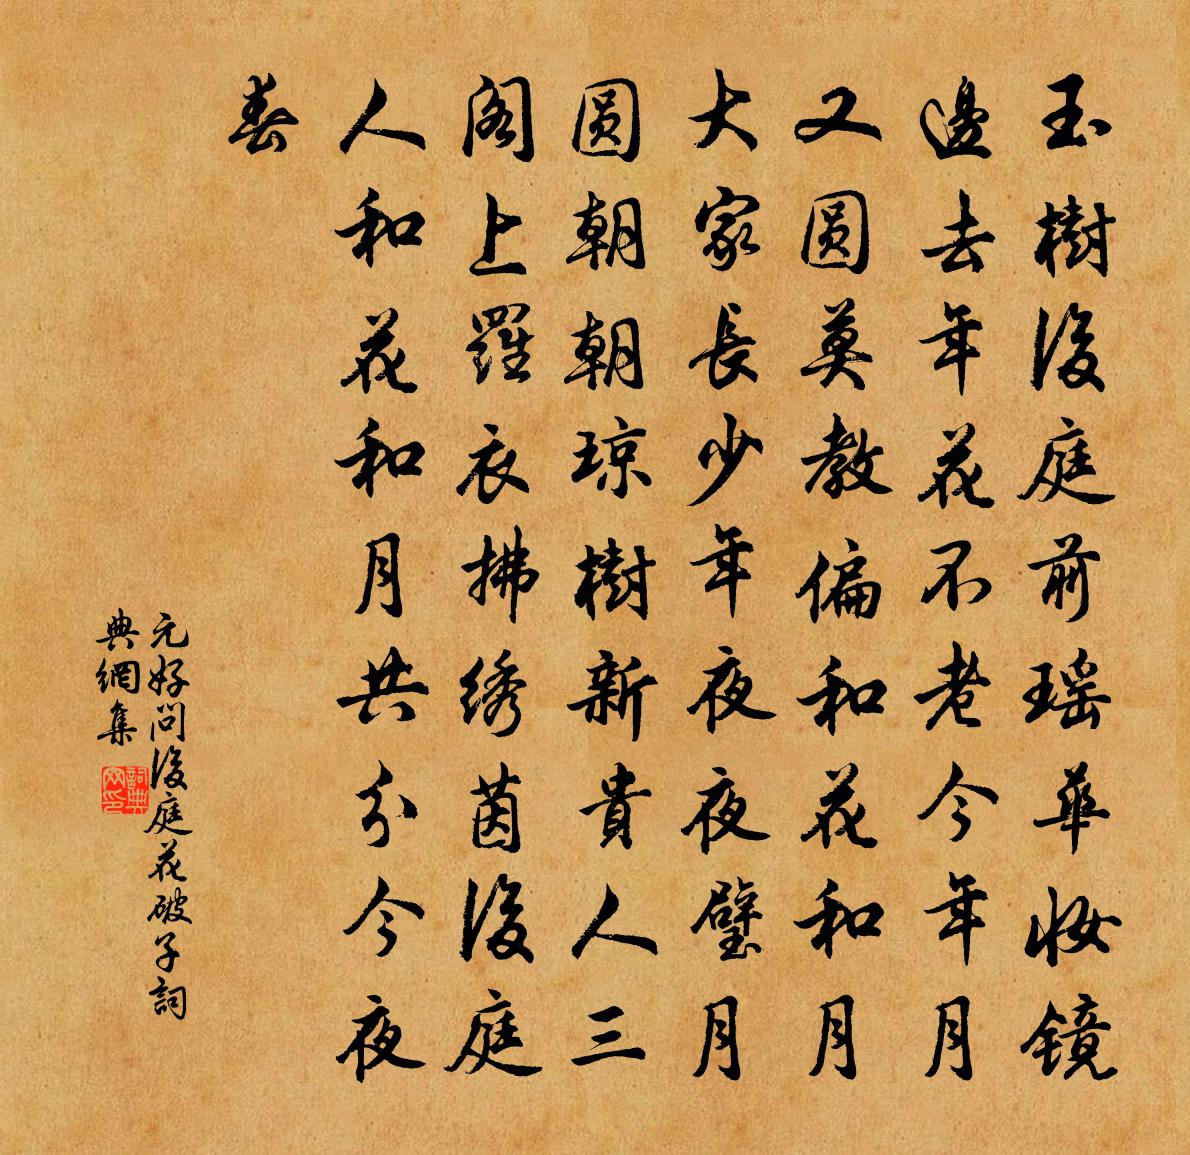 玉樹後庭前瑶華妝镜
邊去年花不老今年月
又圆莫教偏和花和月
大家長少年夜夜璧月
圆朝朝琼樹新貴人三
阁上羅衣拂绣茵後庭
人和花和月共分今夜
春
元好问後庭花破子詞
典網集
詞典网印